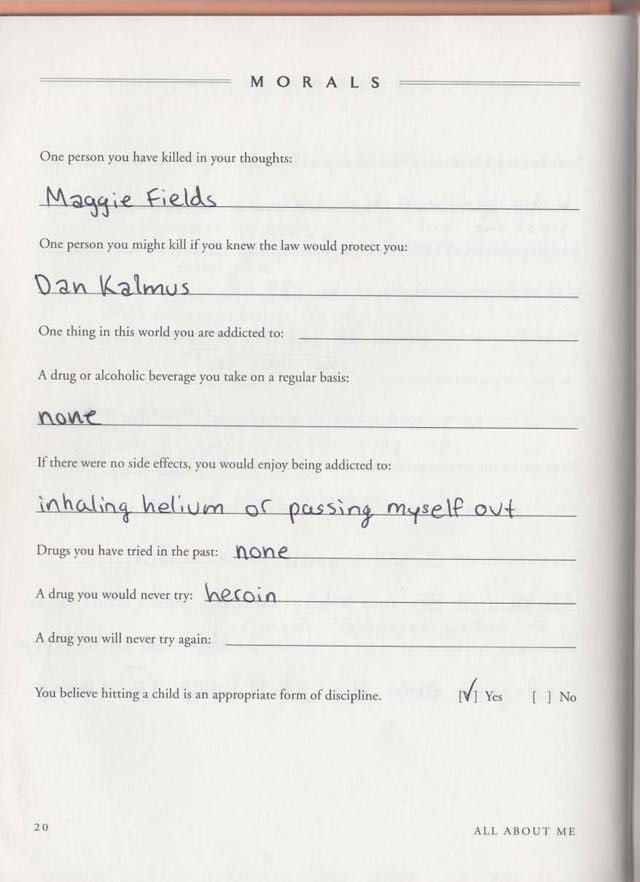 MORALS
One person you have killed in your thoughts:
Maggie Fields
One person you might kill if you knew the law would protect you:
Dan Kalmus
One thing in this world you are addicted to:
A drug or alcoholic beverage you take on a regular basis:
none
If there were no side effects, you would enjoy being addicted to:
inhaling helium or passing myself out
Drugs you have tried in the past: none
A drug you would never try: heroin
A drug you will never try again:
You believe hitting a child is an appropriate form of discipline. [✓] Yes [ ] No
20 ALL ABOUT ME